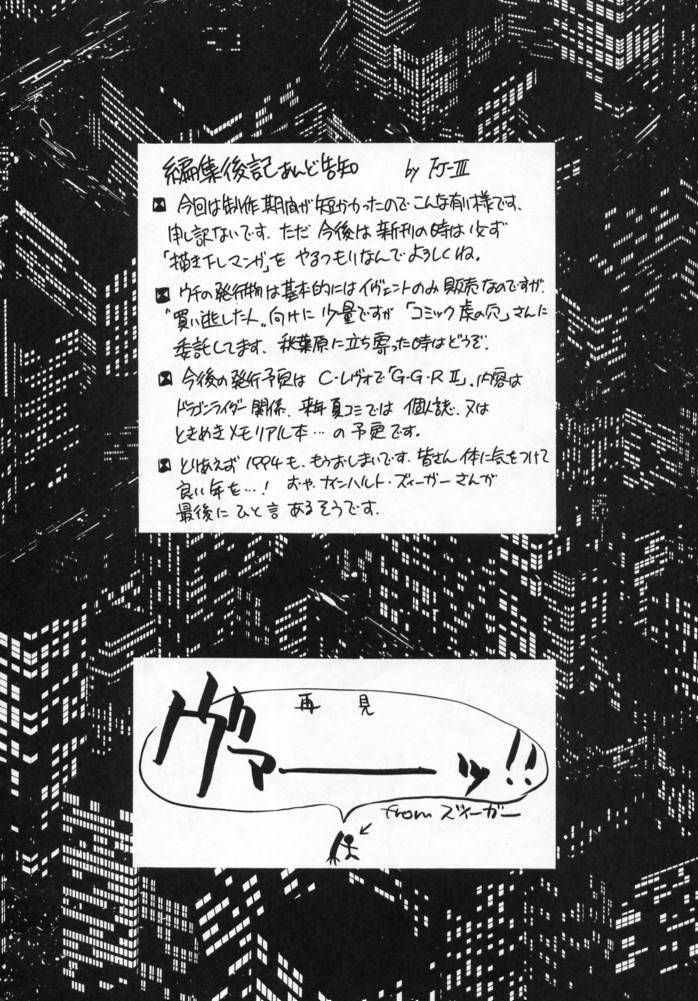 編集後記あんど告知 by FJ-III
今回は制作期間が短かかったのでこんな有り様です、
申し訳ないです。ただ今後は新刊の時は必ず
「描き下しマンガ」をやるつもりなんでよろしくね。
ウチの発行物は基本的にはイヴェントのみ販売なのですが、
“買い逃した人„向けに少量ですが「コミック虎の穴」さんに
委託してます、秋葉原に立ち寄った時はどうぞ.
今後の発行予定は C・レヴォで「G・G・R II」。内容は
ドラゴンライダー関係、来年夏コミでは個人誌、又は
ときめきメモリアル本…の予定です。
とりあえず1994も、もうおしまいです、皆さん体に気をつけて
良い年を…! おや、ラインハルト・ズィーガーさんが
最後にひと言あるそうです.
再見
ヴァーーッ!!
from ズィーガー